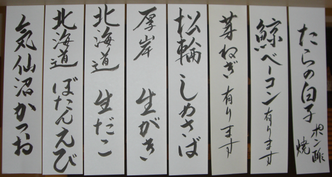 たらの白子 ポン酢 焼
鯨ベーコン有ります
芽ねぎ有ります
松輪 しめさば
厚岸 生がき
北海道 生だこ
北海道 ぼたんえび
気仙沼かつお